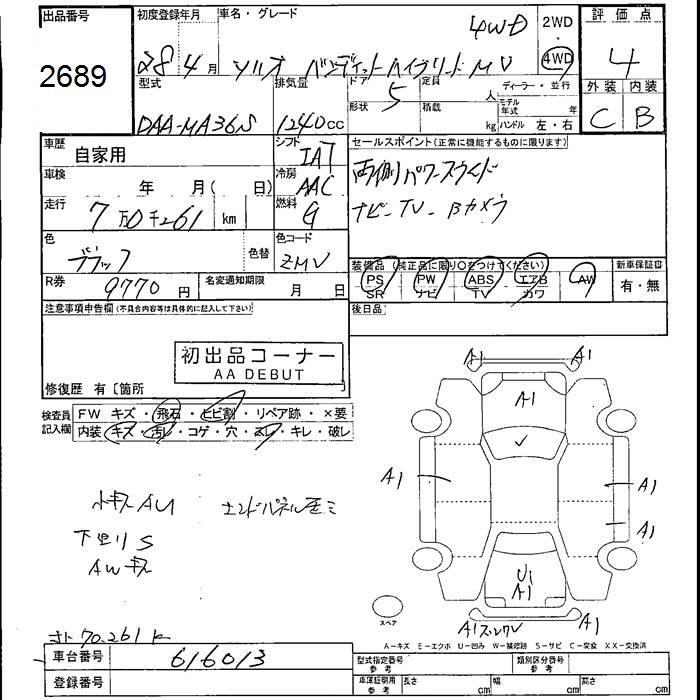 出品番号 初度登録年月 車名・グレード 4WD 2WD ・ 4WD 評価点
2689 28 4月 ソリオ バンディット ハイブリッド MV 4
型式 排気量 ドア 5 定員 人 ディーラー・並行 外装 内装
DAA-MA36S 1240cc 形状 積載 kg モデル年式 年 ハンドル 左・右 C B
車歴 自家用 シフト IAT セールスポイント(正常に機能するものに限ります)
車検 年 月( 日) 冷房 AAC 両側パワースライド
走行 7万0千261 km 燃料 G ナビ-TV-Bカメラ
色 ブラック 色替 色コード ZMV
装備品 (純正品に限り○をつけてください) 新車保証書
PS PW ABS エアB AW 有・無
SR ナビ TV カワ
R券 9770円 名変通知期限 月 日
注意事項申告欄(不具合内容等は具体的に記入して下さい) 後日品
初出品コーナー
AA DEBUT
修復歴 有〔箇所
検査員記入欄 FW キズ・飛石・ヒビ割・リペア跡・×要
内装 キズ・汚レ・コゲ・穴・スレ・キレ・破レ
A1 A1
A1
A1 A1
A1
小キズ AU エンドパネル歪ミ
下回リS
AWキズ
U1
A1
スペア
A1 A1
70.261K
A-キズ E-エクボ U-凹み W-補修跡 S-サビ C-腐食 XX-交換済
車台番号 616013 型式指定番号 参考 類別区分番号 参考
登録番号 車庫証明用 参考 長さ cm 幅 cm 高さ cm